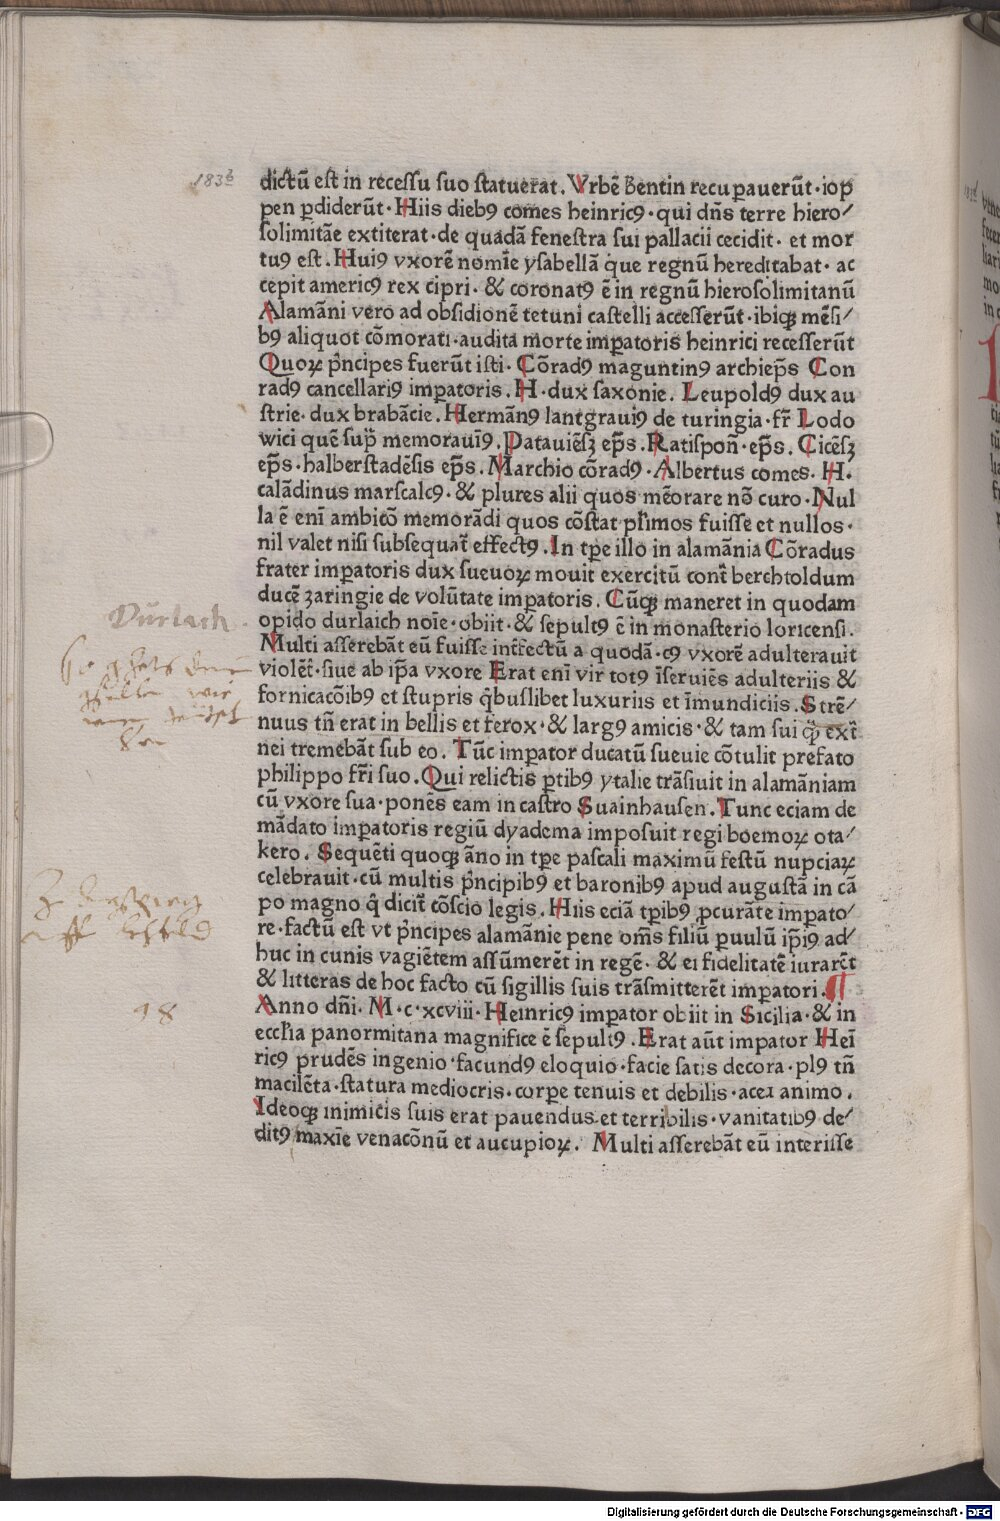 183b
dictū est in recessu suo statuerat. Vrbē Bentin recupauerūt · iop
pen pdiderūt · Hiis diebꝰ comes heinricꝰ · qui dn̄s terre hiero⸗
solimitāe extiterat · de quadā fenestra sui pallacii cecidit · et mor
tuꝰ est. Huiꝰ vxorē nomīe ysabellā que regnū hereditabat · ac
cepit americꝰ rex cipri · & coronatꝰ ē in regnū hierosolimitanū
Alamāni vero ad obsidionē tetuni castelli accesserūt · ibiqꝫ mēsi⸗
bꝰ aliquot cōmorati · audita morte impatoris heinrici recesserūt
Quoꝝ p̄ncipes fuerūt isti · Cōradꝰ maguntinꝰ archiep̄s Con
radꝰ cancellariꝰ impatoris. H · dux saxonie. Leupoldꝰ dux au
strie · dux brabācie. Hermānꝰ lantgrauiꝰ de turingia · fr̄ Lodo
wici quē sup̄ memorauīꝰ. Patauiēsꝫ ep̄s. Ratispon̄ · ep̄s. Cicēsꝫ
ep̄s · halberstadēsis ep̄s. Marchio cōradꝰ · Albertus comes · H.
calādinus marscalcꝰ · & plures alii quos mēorare nō curo · Nul
la ē enī ambicō memorādi quos cōstat pl̄imos fuisse et nullos ·
nil valet nisi subsequat̄ effectꝰ. In tp̄e illo in alamānia Cōradus
frater impatoris dux sueuoꝝ mouit exercitū cont̄ berchtoldum
ducē zaringie de volūtate impatoris. Cūqꝫ maneret in quodam
opido durlaich noīe · obiit · & sepultꝰ ē in monasterio loricensi.
Multi asserebāt eū fuisse int̄fectū a quodā · cꝰ vxorē adulterauit
violēt̄ · siue ab ip̄a vxore Erat enī vir totꝰ īseruiēs adulteriis &
fornicacōibꝰ et stupris q̄buslibet luxuriis et īmundiciis. Strē⸗
nuus tn̄ erat in bellis et ferox · & largꝰ amicis · & tam sui q̄ꝫ ext̄
nei tremebāt sub eo. Tūc impator ducatū sueuie cōtulit prefato
philippo fr̄i suo. Qui relictis ptibꝰ ytalie trāsiuit in alamāniam
cū vxore sua · ponēs eam in castro Suainhausen. Tunc eciam de
mādato impatoris regiū dyadema imposuit regi boemoꝝ ota⸗
kero. Sequēti quoqꝫ āno in tp̄e pascali maximū festū nupciaꝝ
celebrauit · cū multis p̄ncipibꝰ et baronibꝰ apud augustā in cā
po magno q̄ dicit̄ cōscio legis. Hiis eciā tpibꝰ ꝓcurāte impato⸗
re · factū est vt p̄ncipes alamānie pene om̄s filiū puulū ip̄iꝰ ad⸗
huc in cunis vagiētem assūmerēt in regē · & ei fidelitatē iurarēt
& litteras de hoc facto cū sigillis suis trāsmitterēt impatori. ¶
Anno dn̄i · M · c · xcviii · Heinricꝰ impator obiit in Sicilia · & in
eccl̄ia panormitana magnifice ē sepultꝰ. Erat aūt impator Heī
ricꝰ prudēs ingenio · facundꝰ eloquio · facie satis decora · plꝰ tn̄
macilēta · statura mediocris · corpe tenuis et debilis · acer animo.
Ideoqꝫ inimicis suis erat pauendus et terribilis · vanitatibꝰ de⸗
ditꝰ maxīe venacōnū et aucupioꝝ. Multi asserebāt eū interiisse
Durlach
98
Digitalisierung gefördert durch die Deutsche Forschungsgemeinschaft - DFG